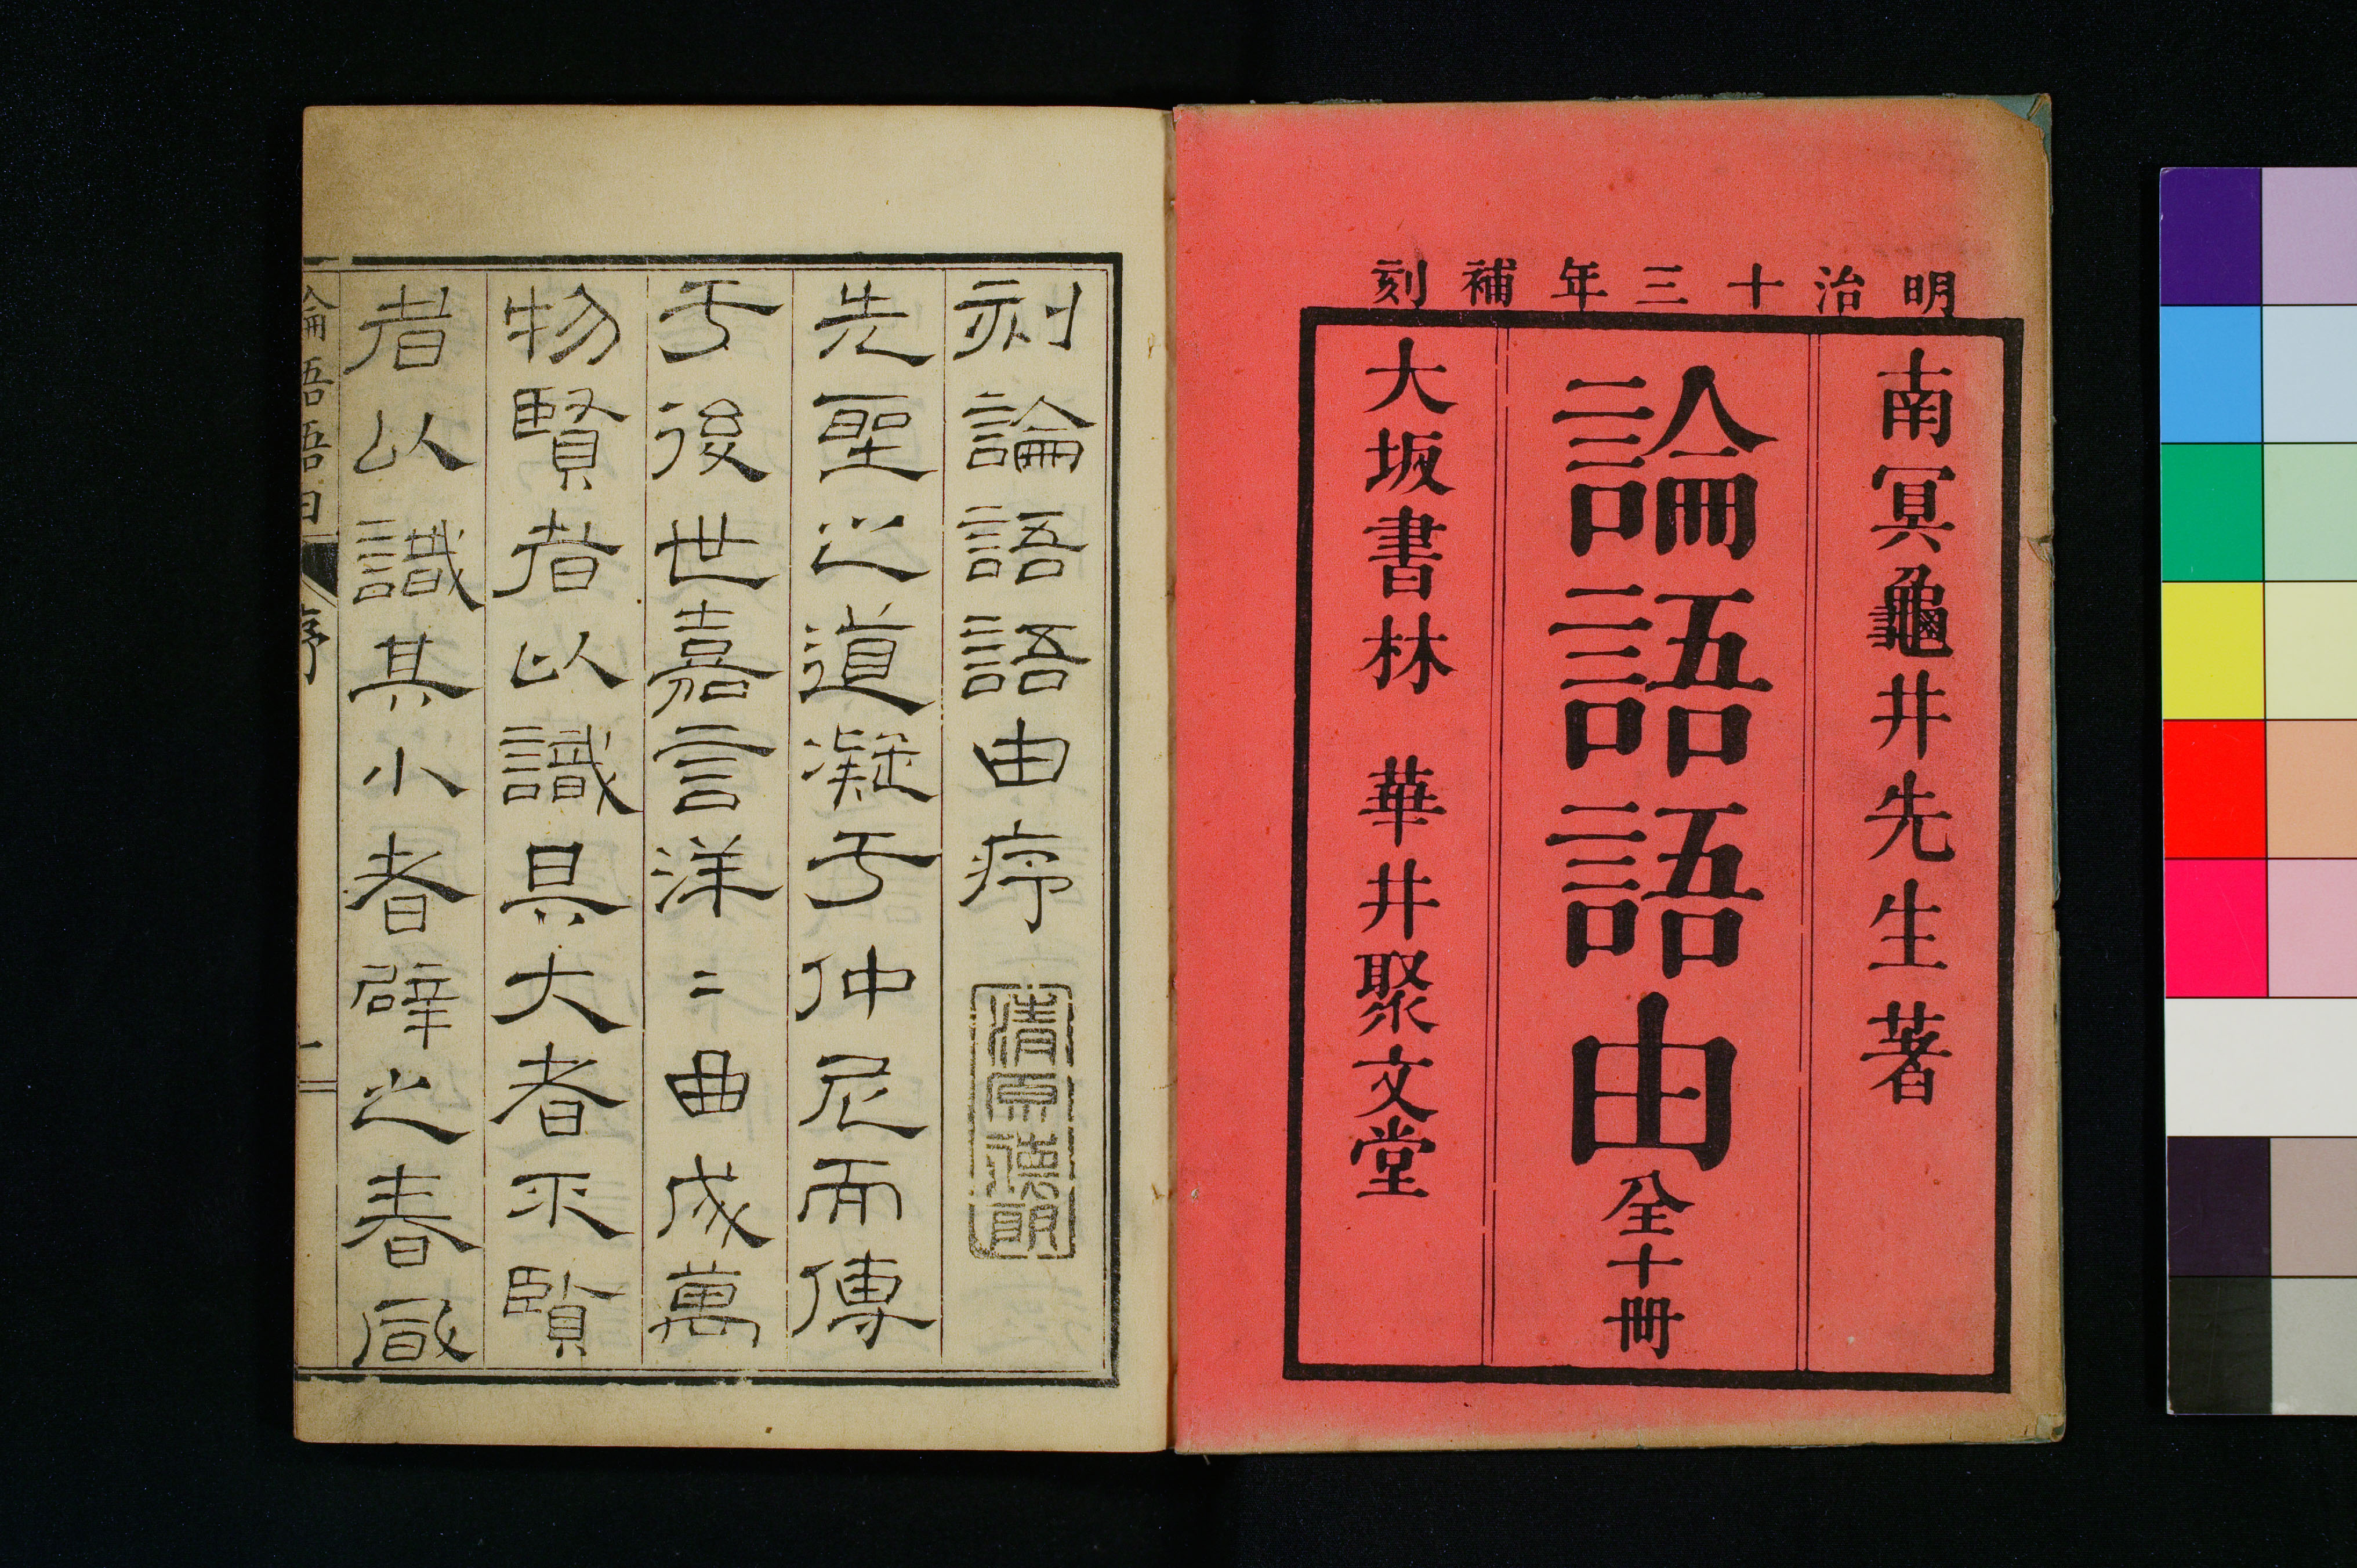 明治十三年補刻
南冥龜井先生著
論語語由全十冊
大坂書林 華井聚文堂
刻論語語由序
先聖之道凝于仲尼而傳
于後世嘉言洋〻曲成萬
物賢者以識其大者不賢
者以識其小者辟之春
論語語由 序 一